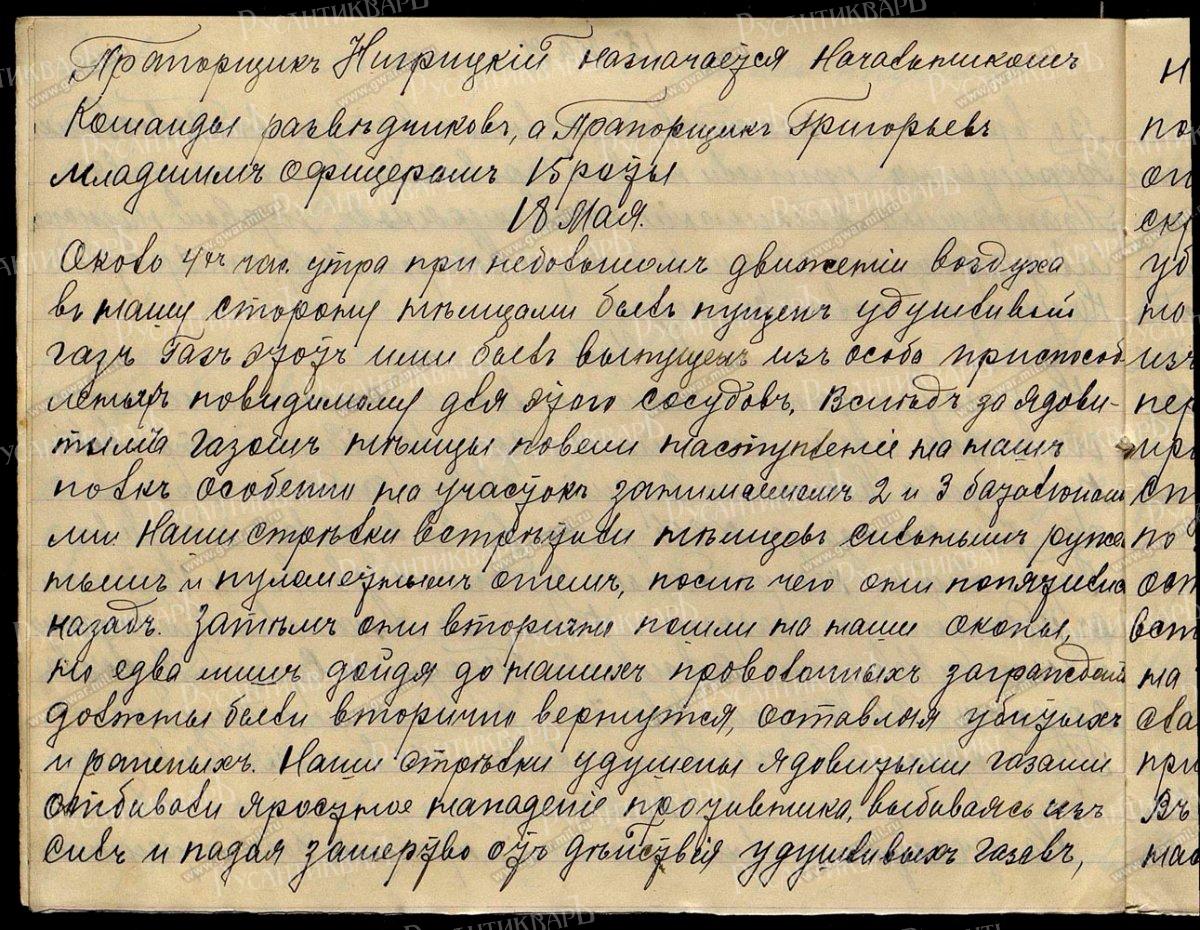 Прапорщикъ Нигрицкій назначается Начальникомъ
Команды развѣдчиковъ, а Прапорщикъ Григорьевъ
младшимъ офицеромъ 15 роты
18 Мая.
Около 4ех час. утра при небольшомъ движеніи воздуха
въ нашу сторону нѣмцами былъ пущенъ удушливый
газъ Газъ этотъ ими былъ выпущенъ изъ особо приспособ-
леныхъ повидимому для этого сосудовъ. Вслѣдъ за ядови-
тымъ газомъ нѣмцы повели наступленіе на нашъ
полкъ особенно на участокъ занимаемомъ 2 и 3 баталіона-
ми. Наши стрѣлки встрѣтили нѣмцовъ сильнымъ ружей
нымъ и пулеметнымъ огнемъ, послѣ чего они попятились
назадъ. Затѣмъ они вторично пошли на наши окопы,
но едва лишъ дойдя до нашихъ проволочныхъ загражденій
должны были вторично вернутся, оставляя убитыхъ
и раненыхъ. Наши стрѣлки удушены ядовитыми газами
отбивали яростное нападеніе противника, выбиваясь изъ
силъ и падая замертво отъ дѣйствія удушливыхъ газавъ,